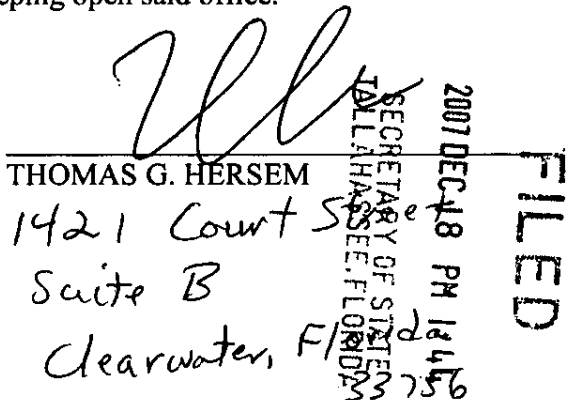 eping open said office.
THOMAS G. HERSEM
1421 Court Street
Suite B
Clearwater, Florida
33756
FILED
2007 DEC 18 PM
SECRETARY OF STATE
TALLAHASSEE, FLORIDA